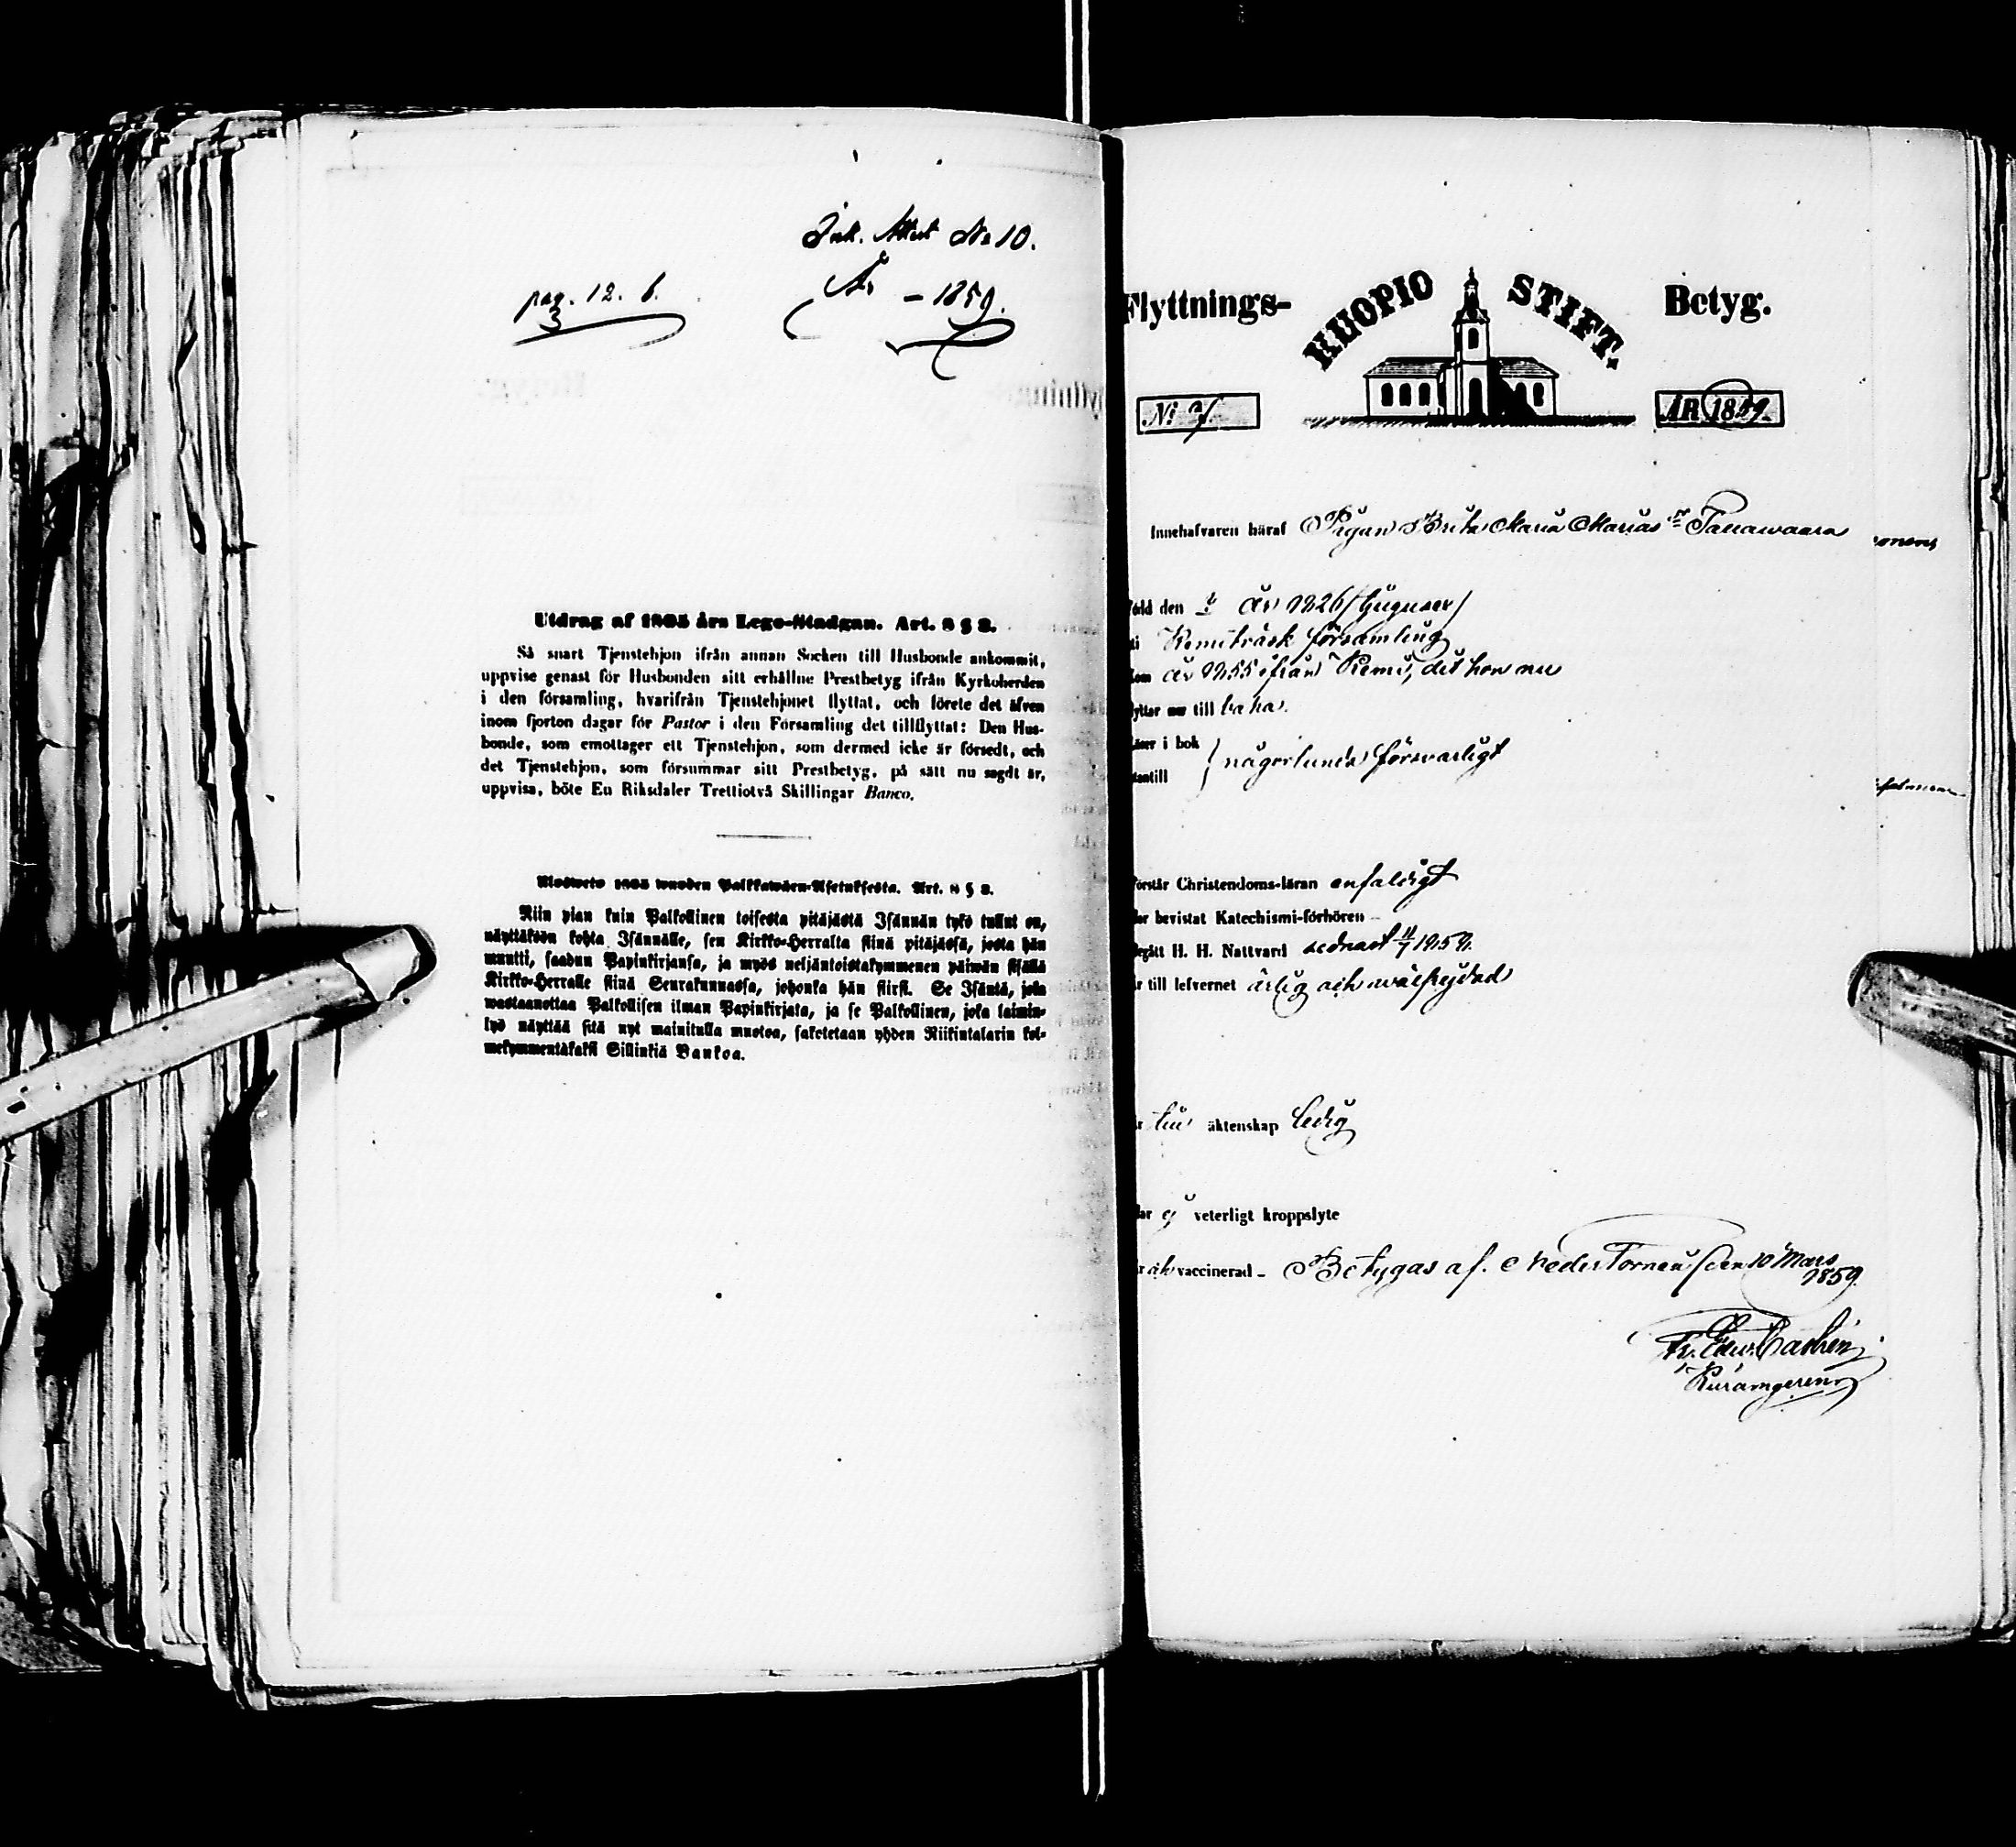 Ink. Attest No 10.
År - 1859.
pag. 12. b.
Utdrag af 1805 års Lego-Stadgan. Art. 8 § 2.
Så snart Tjenstehjon ifrån annan Socken till Husbonde ankommit,
uppvise genast för Husbonden sitt erhållne Prestbetyg ifrån Kyrkoherden
i den församling, hvarifrån Tjenstehjonet flyttat, och förete det äfven
inom fjorton dagar för Pastor i den Församling det tillflyttat: Den Hus-
bonde, som emottager ett Tjenstehjon, som dermed icke är försedt, och
det Tjenstehjon, som försummar sitt Prestbetyg, på sätt nu sagdt är,
uppvisa, böte En Riksdaler Trettiotvå Skillingar Banco.
Ulosweto 1805 wuoden Palkkawäen-Asetuksesta. Art. 8 § 2.
Niin pian kuin Palkollinen toisesta pitäjästä Isännän tykö tullut on,
näyttäköön kohta Isännälle, sen Kirkko-Herralta siinä pitäjässä, josta hän
muutti, saadun Papinkirjansa, ja myös neljäntoistakymmenen päiwän sisällä
Kirkko-Herralle siinä Seurakunnassa, johonka hän siirsi. Se Isäntä, joka
wastaanottaa Palkollisen ilman Papinkirjata, ja se Palkollinen, joka laimin-
lyö näyttää sitä nyt mainitulla muotoa, sakotetaan yhden Riikintalarin kol-
mekymmentäkaksi Sillinkiä Bankoa.
Flyttnings- KUOPIO STIFT. Betyg.
No 7. ÅR 1859.
Innehafvaren häraf Pigan Brita Maria Mariasdr Tanawaara
född den år 1826 /Tjuguser/
ti Kemiträsk församling
kom år 1855 ifrån Kemi, dit hon nu
flyttar nu till baka.
Läser i bok
utantill } någorlunda försvarligt
förstår Christendoms-läran enfaldigt
Har bevistat Katechismi-förhören -
Begått H. H. Nattvard sednast 1859.
är till lefvernet ärlig och wälfrejdad
är till äktenskap ledig
Har ej veterligt kroppslyte
är ock vaccinerad - Betygas af. Neder Torneå den 10 Mars
1859.
Fr. Edw. Cachén